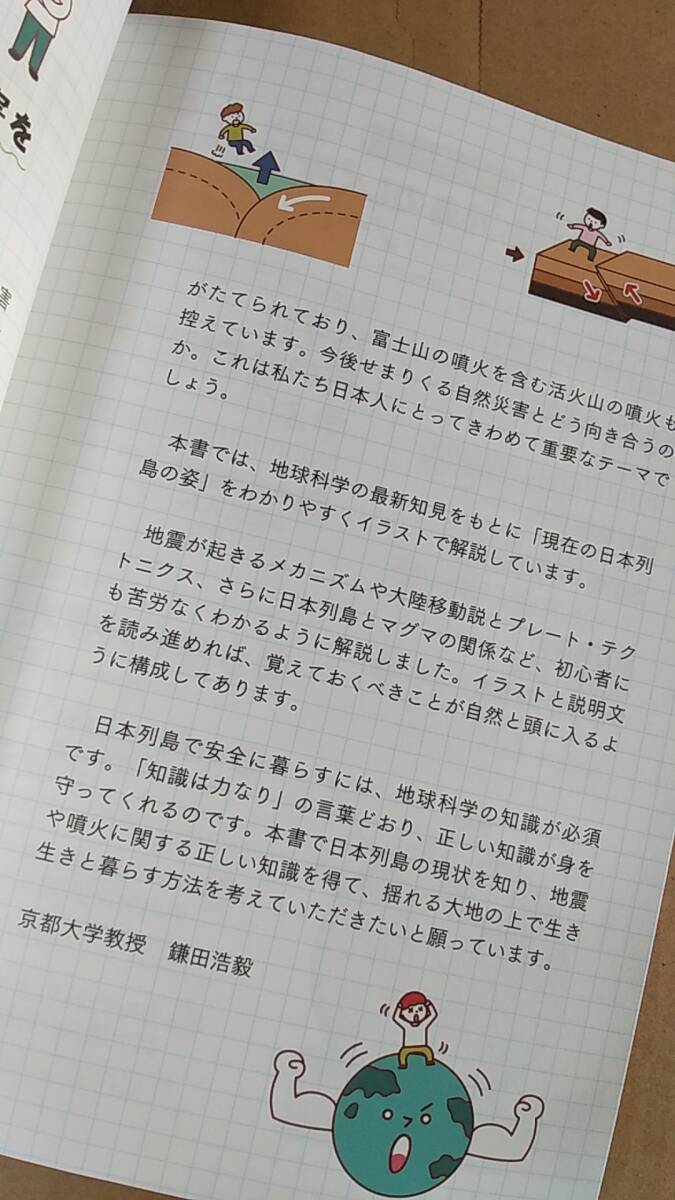 を
害
がたてられており、富士山の噴火を含む活火山の噴火も
控えています。今後せまりくる自然災害とどう向き合うの
か。これは私たち日本人にとってきわめて重要なテーマで
しょう。
本書では、地球科学の最新知見をもとに「現在の日本列
島の姿」をわかりやすくイラストで解説しています。
地震が起きるメカニズムや大陸移動説とプレート・テク
トニクス、さらに日本列島とマグマの関係など、初心者に
も苦労なくわかるように解説しました。イラストと説明文
を読み進めれば、覚えておくべきことが自然と頭に入るよ
うに構成してあります。
日本列島で安全に暮らすには、地球科学の知識が必須
です。「知識は力なり」の言葉どおり、正しい知識が身を
守ってくれるのです。本書で日本列島の現状を知り、地震
や噴火に関する正しい知識を得て、揺れる大地の上で生き
生きと暮らす方法を考えていただきたいと願っています。
京都大学教授　鎌田浩毅